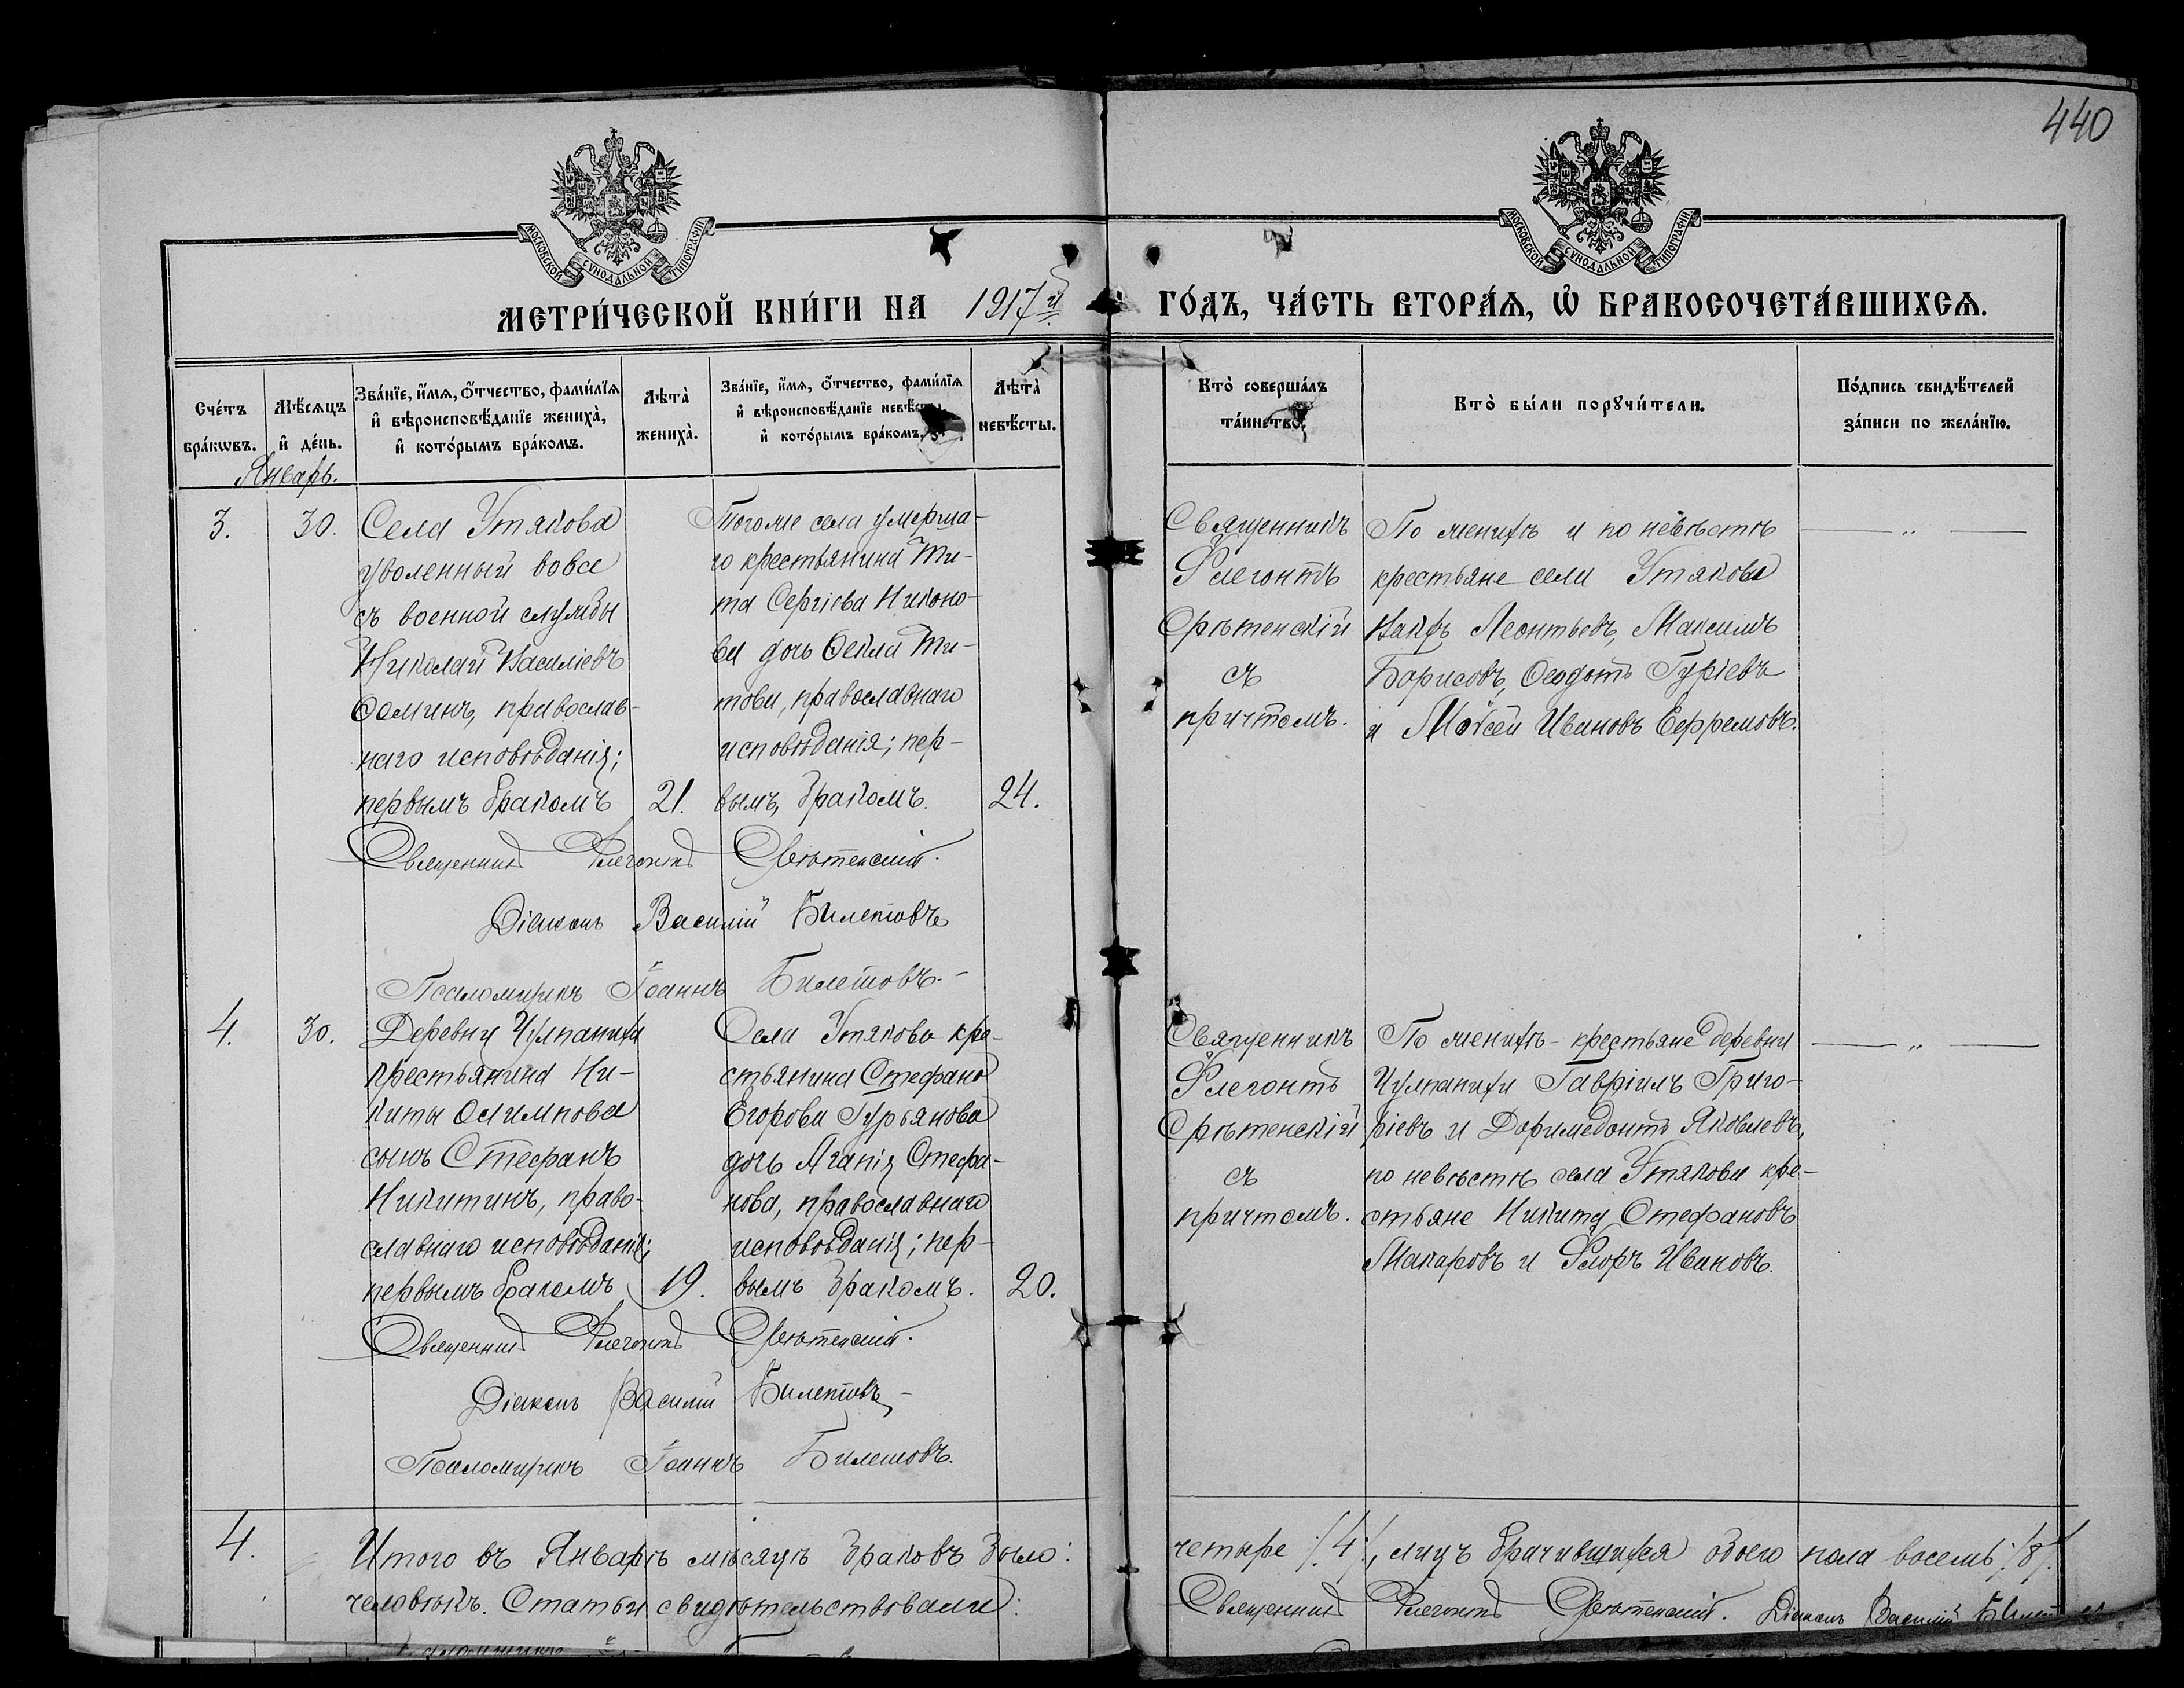 440
МОСКОВСКОЙ СѴНОДАЛЬНОЙ ТИПОГРАФІИ
МОСКОВСКОЙ СѴНОДАЛЬНОЙ ТИПОГРАФІИ
МЕТРИ́ЧЕСКОЙ КНИ́ГИ НА 1917й ГО́ДЪ, ЧА́СТЬ ВТОРА́Ѧ, Ѽ БРАКОСОЧЕТА́ВШИХСѦ.
Сче́тъ бра́кѡвъ.
Мѣ́сѧцъ и де́нь.
Зва́нїе, и́мѧ, ѻ́тчество, фами́лїѧ
и вѣроисповѣ́данїе жениха̀,
и кото́рымъ бра́комъ.
Лѣта̀ жениха̀.
Зва́нїе, и́мѧ, ѻ́тчество, фами́лїѧ
и вѣроисповѣ́данїе
и кото́рымъ бра́комъ.
Лѣта̀ невѣ́сты.
Кто̀ соверша́лъ
та́инство.
Кто̀ бы́ли порꙋчи́тели.
По́дпись свидѣ́телей
за́писи по жела́нїю.
Январь.
3.
30.
Села Утякова
уволенный вовсе
съ военной службы
Николай Василіевъ
Ѳоминъ, православ-
наго исповѣданія;
первымъ бракомъ
21.
Тогоже села умерша-
го крестьянина Ти-
та Сергіева Никоно-
ва дочь Ѳекла Ти-
това, православнаго
исповѣданія; пер-
вымъ бракомъ.
24.
Священникъ
Флегонтъ
Срѣтенскій
съ
причтомъ.
По женихѣ и по невѣстѣ
крестьяне села Утякова
Іакфъ Леонтьевъ, Максимъ
Борисовъ, Ѳеодотъ Гуріевъ
и Моисей Ивановъ Ефремовъ.
— „ —
Священникъ Флегонтъ Срѣтенскій.
Діаконъ Василій Билетовъ
Псаломщикъ Іоаннъ Билетовъ.-
4.
30.
Деревни Чулпанихи
крестьянина Ни-
киты Олимпова
сынъ Стефанъ
Никитинъ, право-
славнаго исповѣданія;
первымъ бракомъ
19.
Села Утякова кре-
стьянина Стефана
Егорова Гурьянова
дочь Агапія Стефа-
нова, православнаго
исповѣданія; пер-
вымъ бракомъ.
20.
Священникъ
Флегонтъ
Срѣтенскій
съ
причтомъ.
По женихѣ - крестьяне деревни
Чулпанихи Гавріилъ Григо-
ріевъ и Доримедонтъ Яковлевъ,
по невѣстѣ села Утякова кре-
стьяне Никита Стефановъ
Макаровъ и Флоръ Ивановъ.
— „ —
Священникъ Флегонтъ Срѣтенскій.
Діаконъ Василій Билетовъ
Псаломщикъ Іоаннъ Билетовъ.
4.
Итого въ Январѣ мѣсяцѣ браковъ было: четыре /4/, лицъ брачившихся обоего пола восемь /8/.
человѣкъ. Статьи свидѣтельствовали: Священникъ Флегонтъ Срѣтенскій. Діаконъ Василій